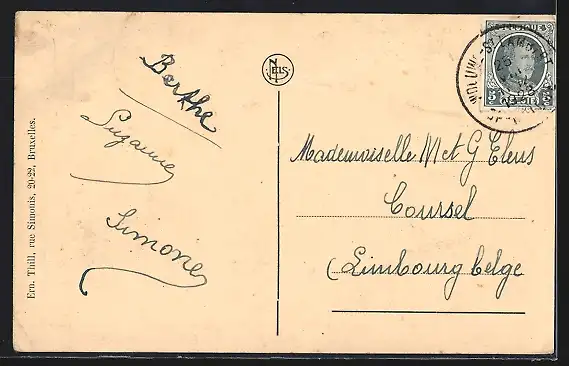 Ern. Thill, rue Simonis, 20-22, Bruxelles.
Berthe
Suzanne
Simone
NELS
Mademoiselle M et G Elens
Coursel
Limbourg belge
5 5